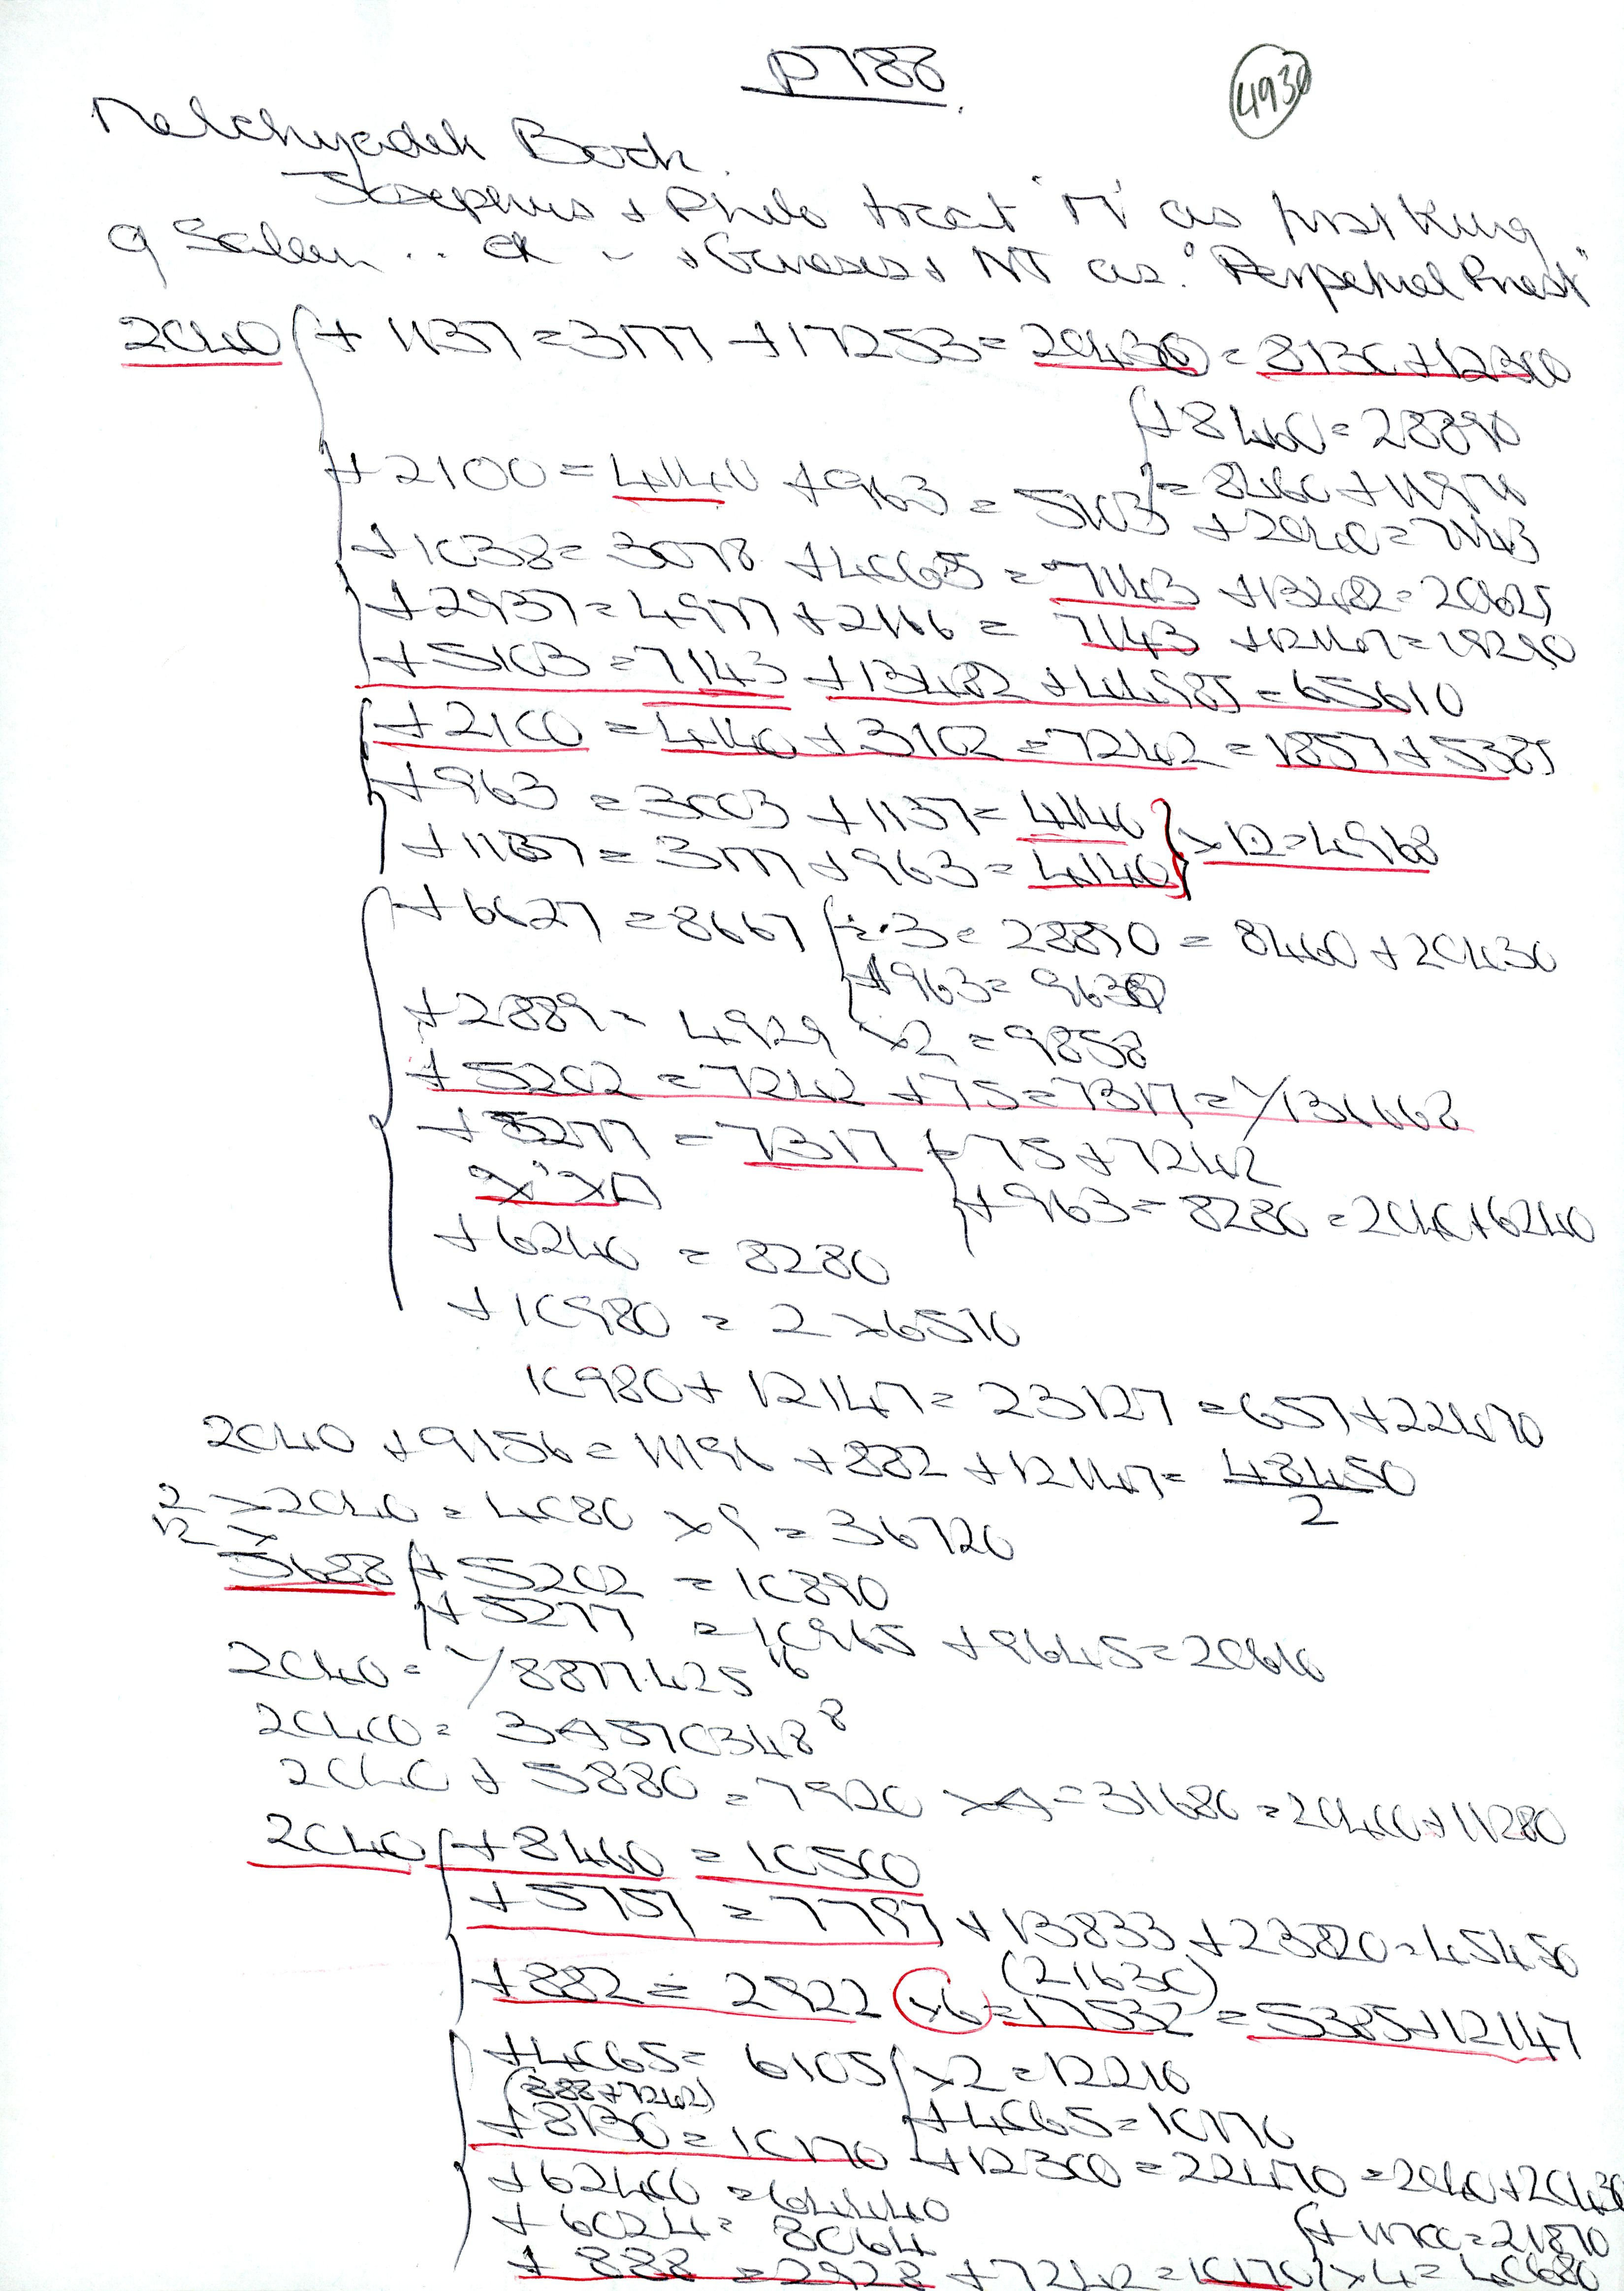 P788
4930
Melchyzedek Book.
Josephus + Philo treat 'M' as first King
of Salem .. OR + Genesis + NT as. "Perpetual Priest"
2040 + 1137 = 3177 + 17253 = 20430 = 8130 + 12300
+ 8460 = 28890
+ 2100 = 4140 + 963 = 5103 = 8460 + 11970
+ 2040 = 7143
+ 1038 = 3078 + 4065 = 7143 + 13482 = 20625
+ 2937 = 4977 + 2166 = 7143 + 12147 = 19290
+ 5103 = 7143 + 13482 + 44985 = 65610
+ 2100 = 4140 + 3102 = 7242 = 1857 + 5385
+ 963 = 3003 + 1137 = 4140
+ 1137 = 3177 + 963 = 4140 } x 12 = 4968
+ 6627 = 8667 ÷ .3 = 28890 = 8460 + 20430
+ 963 = 9630
+ 2889 = 4929 x 2 = 9858
+ 5202 = 7242 + 75 = 7317 =
+ 5277 = 7317 = 75 + 7242
+ 963 = 8280 = 2040 + 6240
+ 6240 = 8280
+ 10980 = 2 x 6510
10980 + 12147 = 23127 = 657 + 22470
2040 + 9156 = 11196 + 882 + 12147 = 48450
2
2 x 2040 = 4080 x 9 = 36720
12 x
5688 + 5202 = 10890
+ 5277 = 10965 + 9645 = 20610
2040 = √8877.425 16
2040 = 3^570348 8
2040 + 5880 = 7920 x 4 = 31680 = 20400 + 11280
2040 + 8460 = 10500
+ 5757 = 7797 + 13833 + 23820 = 45450
(21630)
+ 882 = 2922 x 6 = 17532 = 5385 + 12147
+ 4065 = 6105 x 2 = 12210
(888 + 7242) + 4065 = 10170
+ 8130 = 10170 + 12300 = 22470 = 2040 + 20430
+ 62400 = 64440
+ 6024 = 8064 + 11700 = 21870
+ 888 = 2928 + 7242 = 10170 x 4 = 40680